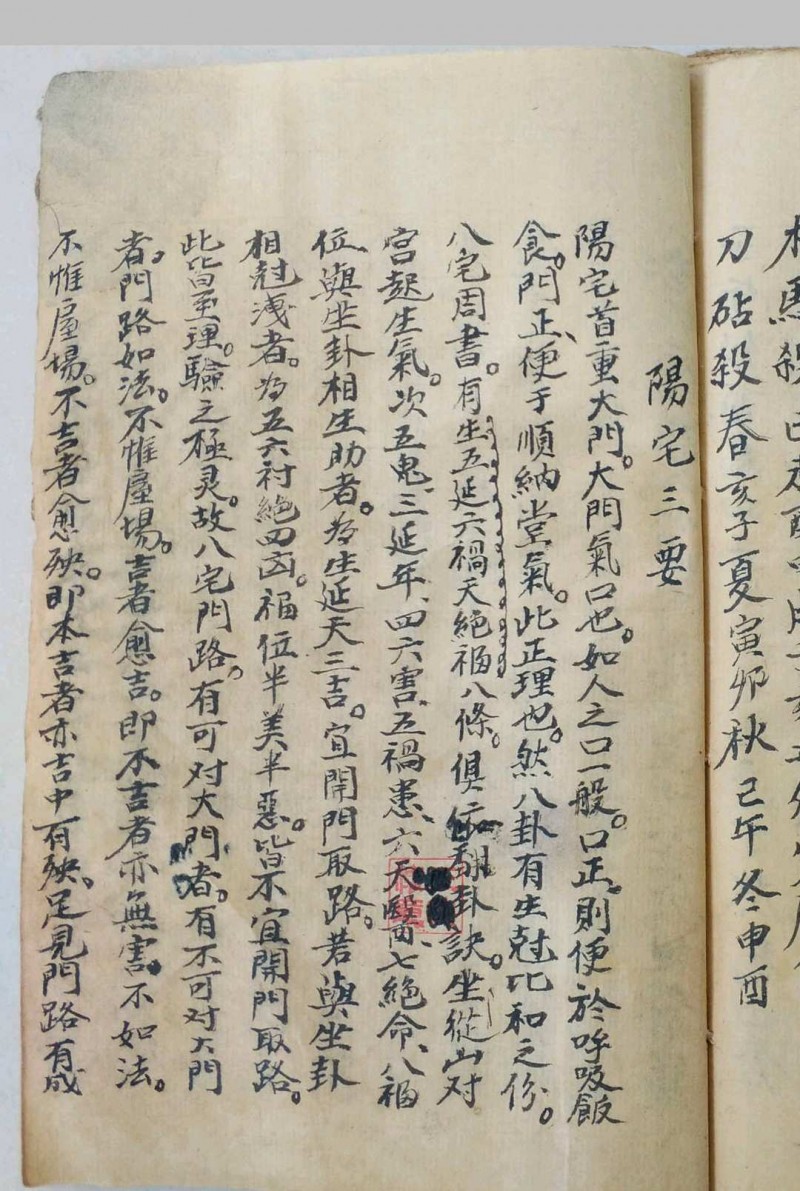 殺
刀砧殺春亥子夏寅卯秋巳午冬申酉
陽宅三要
陽宅首重大門。大門氣口也。如人之口一般。口正。則便於呼吸飯
食。門正、便于順納堂氣。此正理也。然八卦有生尅比和之份。
八宅周書。有生五延六禍天絕福八條。俱翻卦訣。坐從山对
宮起生氣。次五鬼、三延年、四六害、五禍患、六天醫、七絕命、八福
位與坐卦相生助者。為生延天三吉。宜開門取路。若與坐卦
相尅洩者。為五六禍絕四凶。福位半美半惡。皆不宜開門取路。
此皆至理。驗之極灵。故八宅門路。有可对大門者。有不可对大門
者。門路如法。不惟屋場。吉者愈吉。即不吉者亦無害。不如法。
不惟屋場。不吉者愈殃。即本吉者亦吉中有殃。足見門路有成